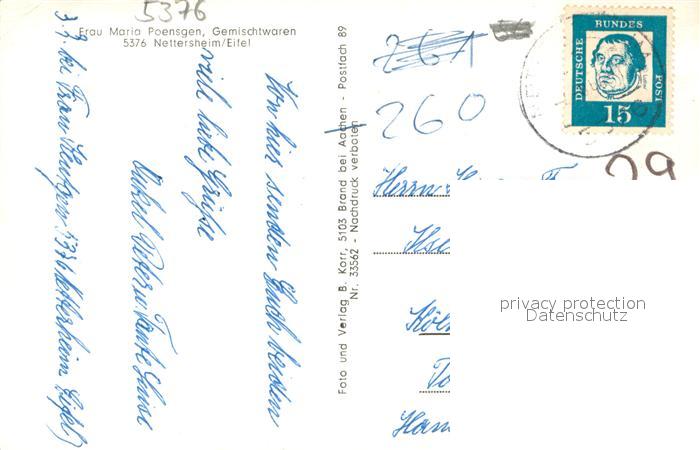 5376
Frau Maria Poensgen, Gemischtwaren
5376 Nettersheim/Eifel
Von hier senden Euch beiden
viele liebe Grüße
Onkel Peter u. Tante Luise
5376 Nettersheim Eifel)
Foto und Verlag B. Korr, 5103 Brand bei Aachen - Postfach 89
Nr. 33562 - Nachdruck verboten
261
260
DEUTSCHE
BUNDES
POST
15
Herrn
Köln
privacy protection
Datenschutz